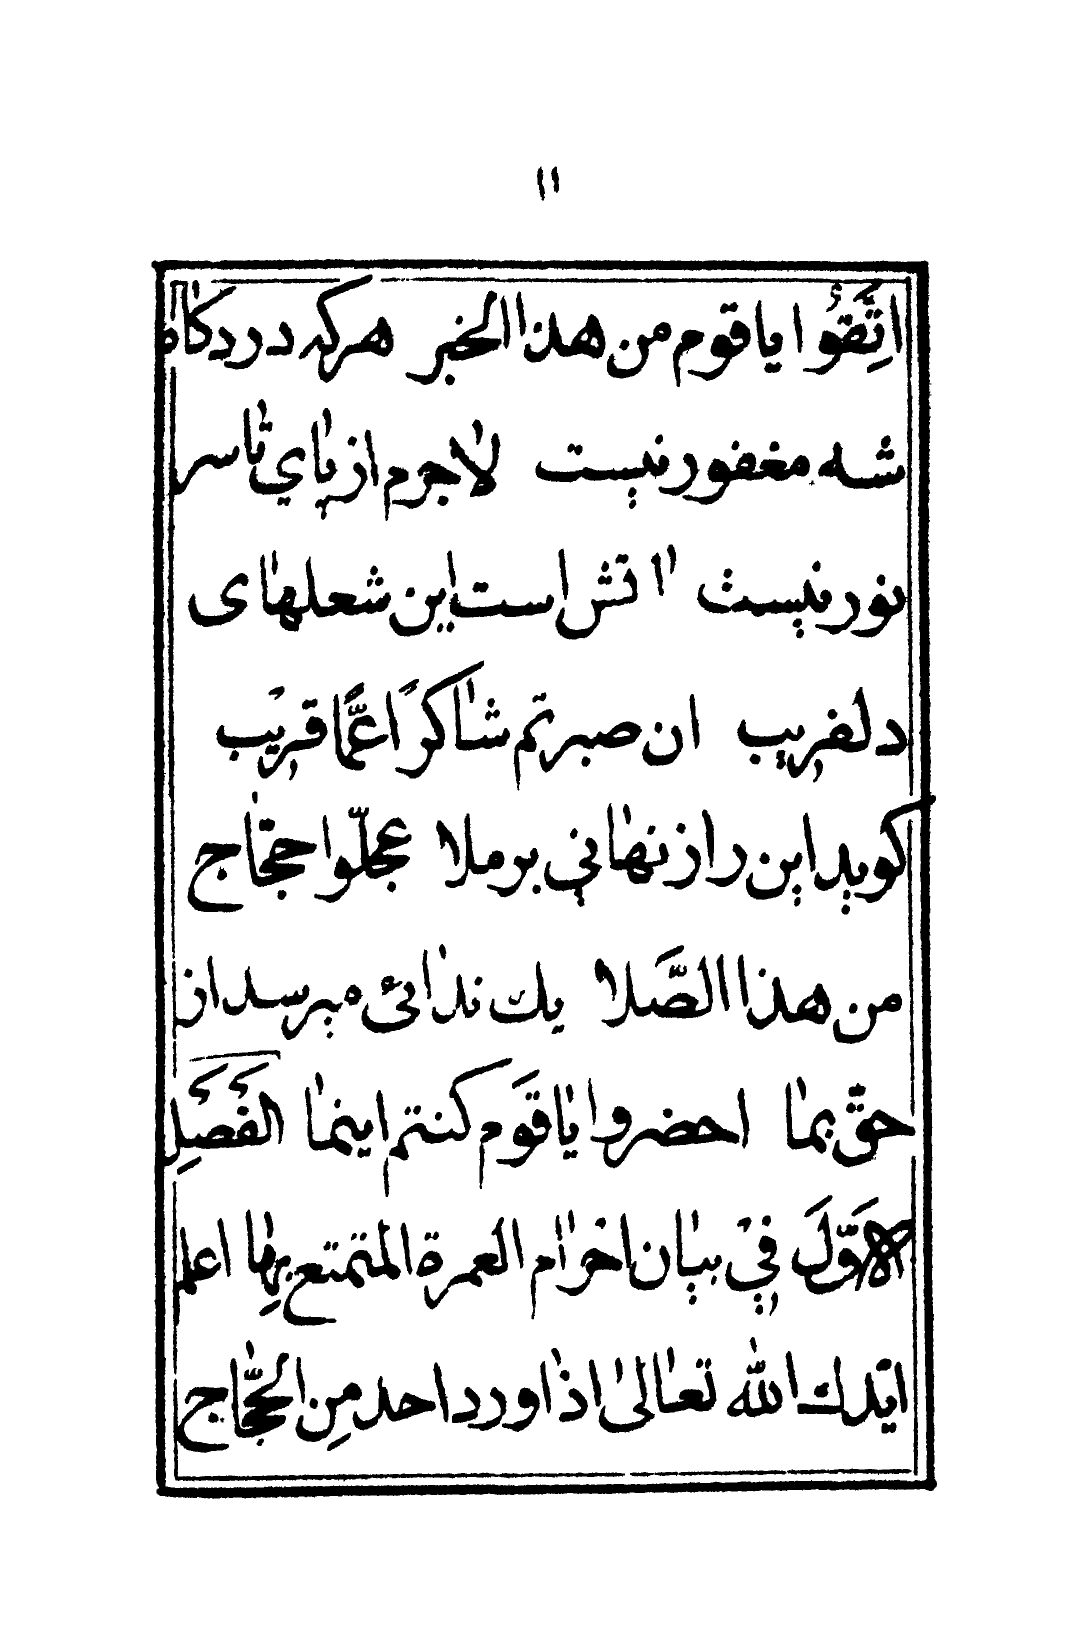 ١١
اتَّقُوا يا قوم من هذا الخبر هركه در دكاه
شه مغفور نيست لاجرم از پاي تا سر
نور نيست اتش است اين شعلهاى
دلفريب ان صبرتم شاكرًا عمّا قريب
كويد اين راز نهاني برملا عجّلوا حجّاج
من هذا الصَّلا يك ندائى ميرسد از
حقّ بما احضروا يا قَوم كنتم اينما الفَصَلِ
الاوَّلَ فِي بيان احرام العمرة المتمتع بِها اعلم
ايّدك الله تعالى اذا ورد احد مِن الحجّاج